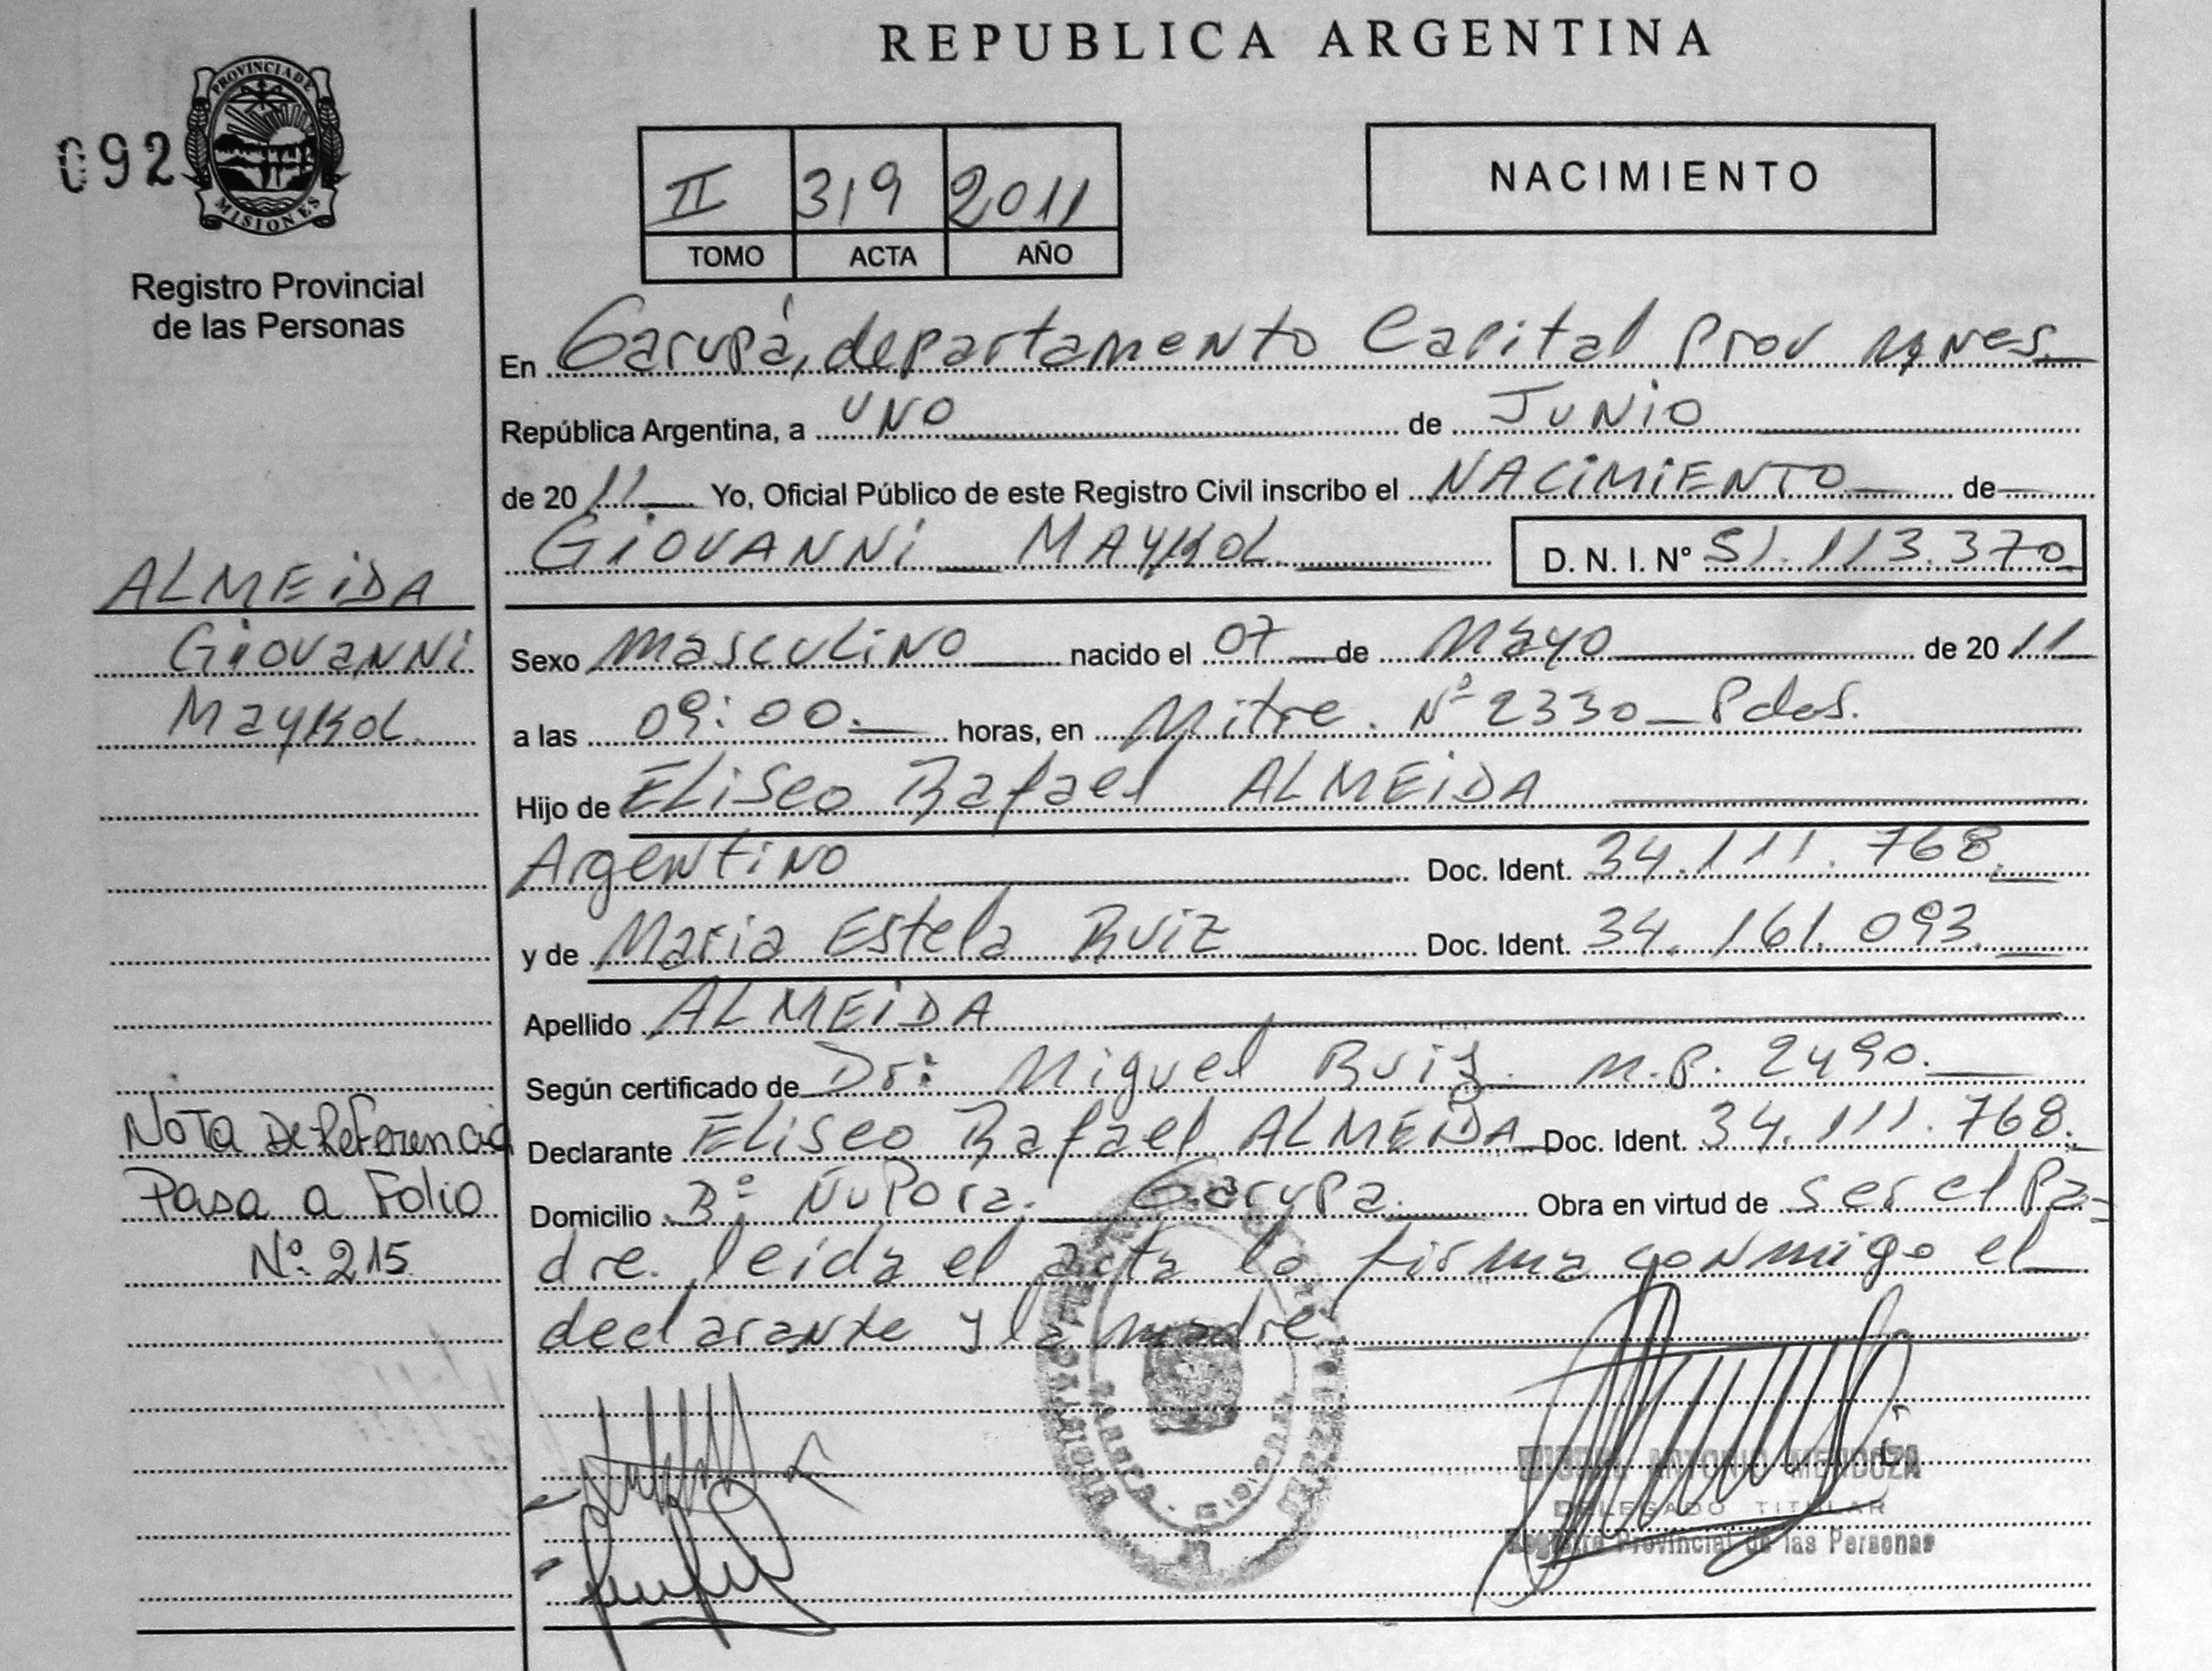 REPUBLICA ARGENTINA
092
PROVINCIA DE
MISIONES
Registro Provincial
de las Personas
II 319 2011
TOMO ACTA AÑO
NACIMIENTO
En Garupá, departamento Capital Prov Mnes
República Argentina, a UNO de JUNIO
de 2011 Yo, Oficial Público de este Registro Civil inscribo el NACIMIENTO de
GIOVANNI MAYKOL D. N. I. Nº 51.113.370
ALMEIDA
Giovanni
Maykol
Sexo masculino nacido el 07 de Mayo de 2011
a las 09:00 horas, en Mitre Nº 2330 Pdas.
Hijo de Eliseo Rafael ALMEIDA
Argentino Doc. Ident. 34.111.768
y de Maria Estela Ruiz Doc. Ident. 34.161.093
Apellido ALMEIDA
Según certificado de Dr: Miguel Ruiz M.P. 2490.
Declarante Eliseo Rafael ALMEIDA Doc. Ident. 34.111.768.
Domicilio Bº ÑuPora. Garupa. Obra en virtud de ser el Pa-
dre. leida el acta lo firma conmigo el
declarante y la madre
Nota De Referencia
Pasa a Folio
Nº 215
ANTONIO MENDOZA
DELEGADO TITULAR
Registro Provincial de las Personas